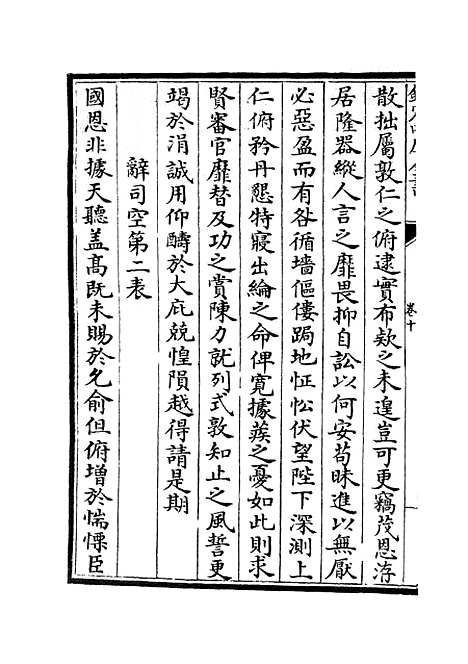 散拙屬敦仁之俯逮實布欵之未遑豈可更竊茂恩洊
居隆器縱人言之靡畏抑自訟以何安苟昧進以無厭
必惡盈而有咎循墻傴僂跼地怔忪伏望陛下深測上
仁俯矜丹懇特寢出綸之命俾寛據蒺之憂如此則求
賢審官靡替及功之賞陳力就列式敦知止之風誓更
竭於涓誠用仰醻於大庇兢惶隕越得請是期
辭司空第二表
國恩非據天聽盖髙既未賜於允俞但俯增於惴慄臣
卷十